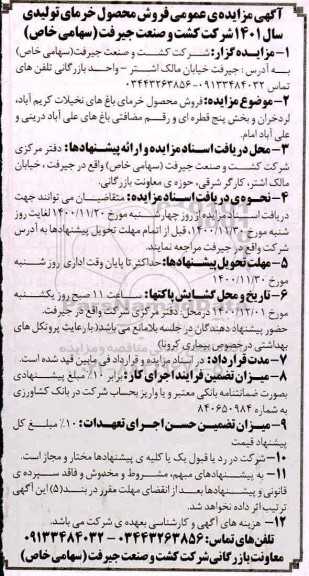 آگهی مزایده‌ی عمومی فروش محصول خرمای تولیدی
سال ۱۴۰۱ شرکت کشت و صنعت جیرفت (سهامی خاص)
۱- مزایده گزار: شرکت کشت و صنعت جیرفت (سهامی خاص)
به آدرس: جیرفت خیابان مالک اشتر - واحد بازرگانی تلفن های
تماس ۰۹۱۳۳۴۸۴۰۳۲ - ۰۳۴۴۳۲۶۳۸۵۶
۲- موضوع مزایده: فروش محصول خرمای باغ های نخیلات کریم آباد،
لردخزان و بخش پنج قطره ای و رقم مضافتی باغ های علی آباد درینی و
علی آباد امام.
۳- محل دریافت اسناد مزایده و ارائه پیشنهادها: دفتر مرکزی
شرکت کشت و صنعت جیرفت (سهامی خاص) واقع در جیرفت، خیابان
مالک اشتر، کارگر شرقی، حوزه ی معاونت بازرگانی.
۴- نحوه ی دریافت اسناد مزایده: متقاضیان می توانند جهت
دریافت اسناد مزایده از روز چهارشنبه مورخ ۱۴۰۰/۱۱/۲۰ لغایت روز
شنبه مورخ ۱۴۰۰/۱۱/۳۰، قبل از اتمام مهلت تحویل پیشنهادها به آدرس
شرکت واقع در جیرفت مراجعه نمایند.
۵- مهلت تحویل پیشنهادها: حداکثر تا پایان وقت اداری روز شنبه
مورخ ۱۴۰۰/۱۱/۳۰
۶- تاریخ و محل گشایش پاکتها: ساعت ۱۱ صبح روز یکشنبه
مورخ ۱۴۰۰/۱۲/۰۱ در محل: دفتر مرکزی شرکت واقع در جیرفت.
حضور پیشنهاد دهندگان در جلسه بلامانع می باشد (با رعایت پروتکل های
بهداشتی درخصوص بیماری کرونا)
۷- مدت قرارداد: در اسناد مزایده و قرارداد فی مابین قید شده است.
۸- میزان تضمین فرایند اجرای کار: برابر ۱۰٪ مبلغ پیشنهادی
بصورت ضمانتنامه بانکی معتبر و یا واریز بحساب شرکت در بانک کشاورزی
به شماره ۸۴۰۶۵۰۹۸۴
۹- میزان تضمین حسن اجرای تعهدات: ۱۰٪ مبلغ کل
پیشنهاد قیمت
۱۰- شرکت در رد یا قبول یک یا کلیه ی پیشنهادها مختار و مجاز است.
۱۱- به پیشنهادهای مبهم، مشروط و مخدوش و فاقد سپرده ی
قانونی و پیشنهادها بعد از انقضای مهلت مقرر در بند (۵) این آگهی
ترتیب اثر داده نخواهد شد.
۱۲- هزینه های آگهی و کارشناسی بعهده ی شرکت می باشد.
تلفن های تماس: ۰۳۴۴۳۲۶۳۸۵۶ - ۰۹۱۳۳۴۸۴۰۳۲
معاونت بازرگانی شرکت کشت و صنعت جیرفت (سهامی خاص)